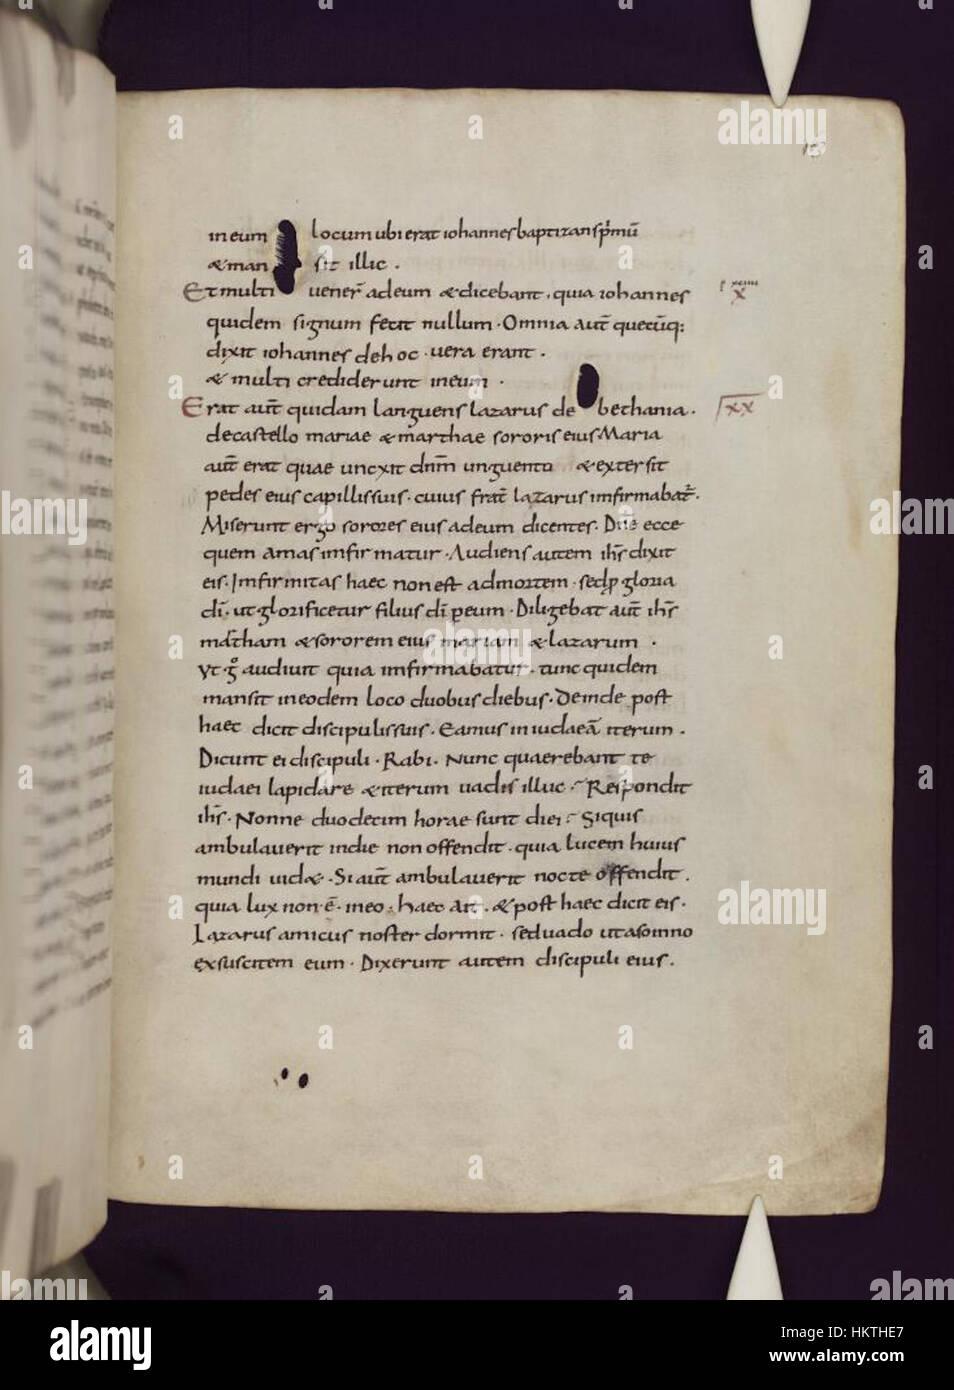 in eum locum ubi erat iohannes baptizans p̄mū
&man sit illic .
Et multi vener̄ ad eum &dicebant . quia iohannes
quidem signum fecit nullum · Omnia aūt quecūq;
dixit iohannes de hoc · vera erant .
& multi crediderunt in eum .
Erat aūt quidam languens lazarus de bethania .
de castello mariae & marthae sororis eius Maria
aūt erat quae uncxit dn̄m unguento &extersit
pedes eius capillis suis · cuius frat̄ lazarus infirmabat̄ .
Miserunt ergo sorores eius ad eum dicentes · Dn̄e ecce
quem amas infirmatur · Audiens autem ih̄s dixit
eis · Infirmitas haec non est ad mortem · sed p gloria
dī · ut glorificetur filius dī p eum · Diligebat aūt ih̄s
martham &sororem eius mariam &lazarum .
Vt g̊ audiuit quia infirmabatur · tunc quidem
mansit in eodem loco duobus diebus · Deinde post
haec dicit discipulis suis · Eamus in iudaeā iterum .
Dicunt ei discipuli · Rabi · Nunc quaerebant te
iudaei lapidare &iterum uadis illuc · Respondit
ih̄s · Nonne duodecim horae sunt diei · Si quis
ambulauerit in die non offendit · quia lucem huius
mundi uid& · Si aūt ambulauerit nocte offendit .
quia lux non ē · in eo · haec ait · &post haec dicit eis ·
Lazarus amicus noster dormit · sed uado ut a somno
exsuscitem eum · Dixerunt autem discipuli eius .
X
XX
alamy
Image ID: HKTHE7
www.alamy.com